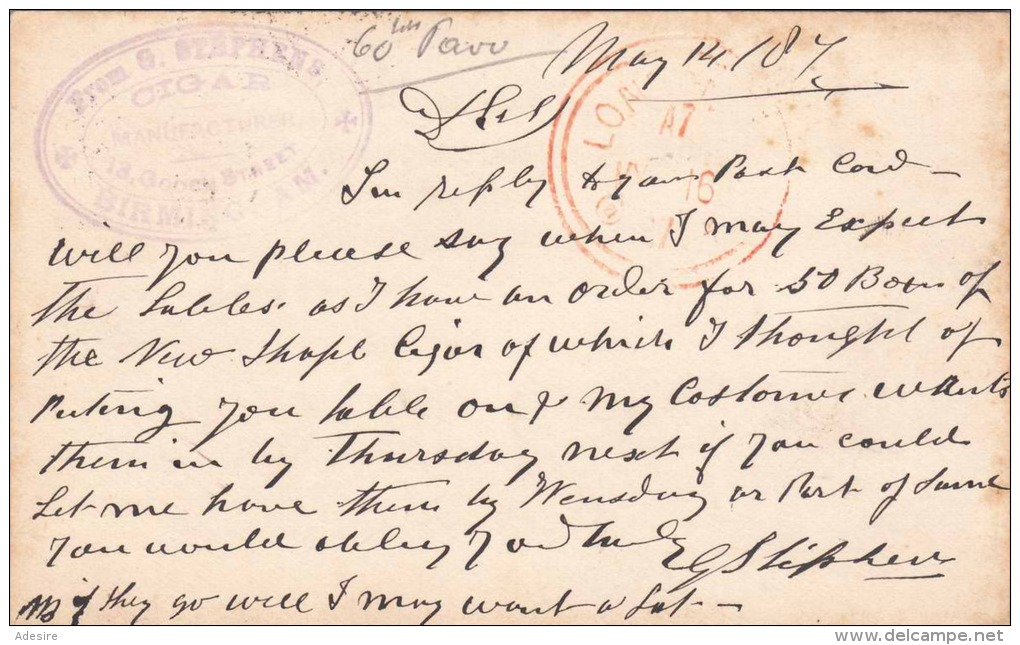 From G. STEPHENS
CIGAR
MANUFACTURER
13, GOOCH STREET
BIRMING M.
60
May 14/87
LON
A7
16
In reply to your Post Card
will you please say when I may Expect
the Lables as I have an order for 50 Boxes of
the New Shape Cigar of which I thought of
Puting you lable on & my Costomer wants
them in by Thursday next if you could
Let me have them by Wensday or Part of same
you would obleg your truly
G Stephens
NB if they go well I may want a Lot
Adesire
delcampe.net